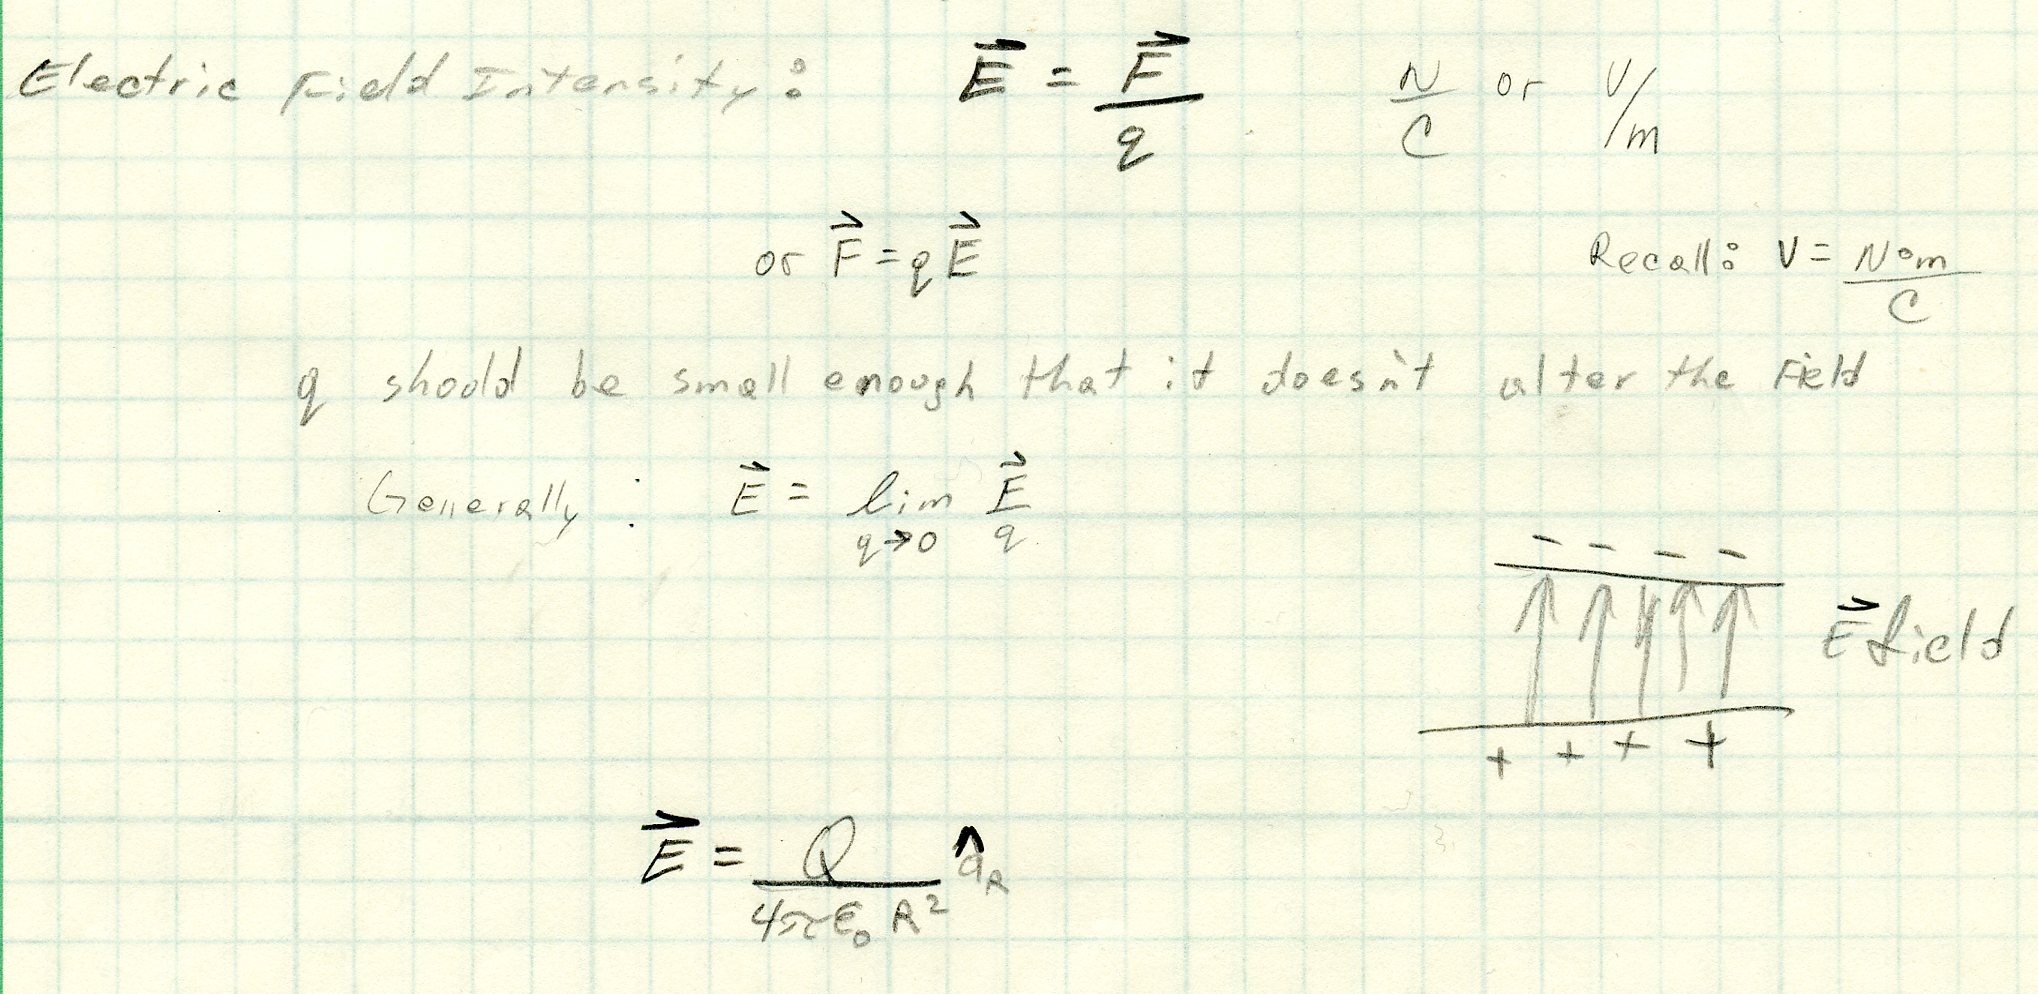 Electric Field Intensity: E⃗ = F⃗/q N/C or V/m
or F⃗ = qE⃗ Recall: V = N·m/C
q should be small enough that it doesn't alter the Field
Generally: E⃗ = lim q→0 F⃗/q
- - - -
E⃗ field
+ + + +
E⃗ = Q/(4πε₀R²) â_R